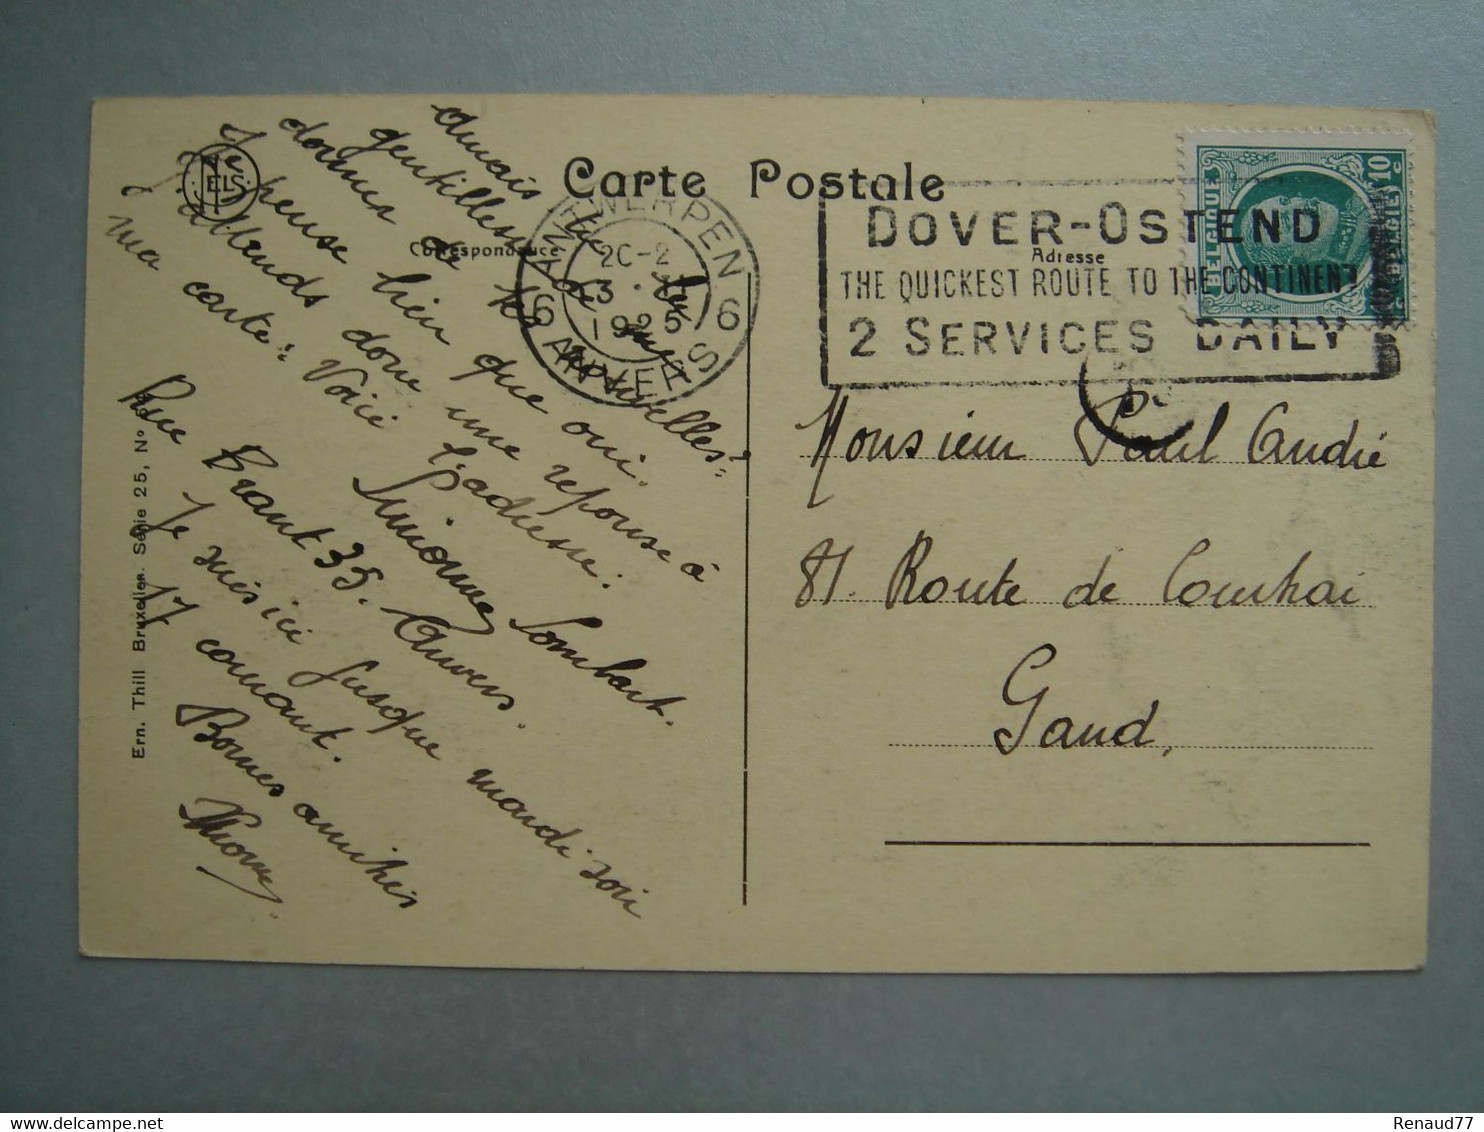 Carte Postale
Correspondance
Adresse
ANTWERPEN 6
2C-2
3
1925
6 ANVERS
DOVER-OSTEND
THE QUICKEST ROUTE TO THE CONTINENT
2 SERVICES DAILY
BELGIQUE
10 C
BELGIË
EL
aurais tu
gentillesse de
donner de
nouvelles?
Je pense bien que oui.
J'attends donc une réponse à
ma carte: Voici l'adresse:
Lombart.
Rue Brant 35. Anvers.
Je suis ici jusque mardi soir
17 courant.
Bonnes amitiés
Monsieur Paul André
81. Route de Courtrai
Gand,
Ern. Thill Bruxelles. Série 25, No
Renaud77